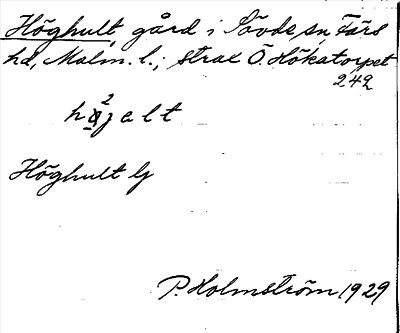 Höghult, gård i Sövde sn, Färs
hd, Malm. l.; strax Ö. Hökatorpet
242
Höghult lj
P. Holmström 1929